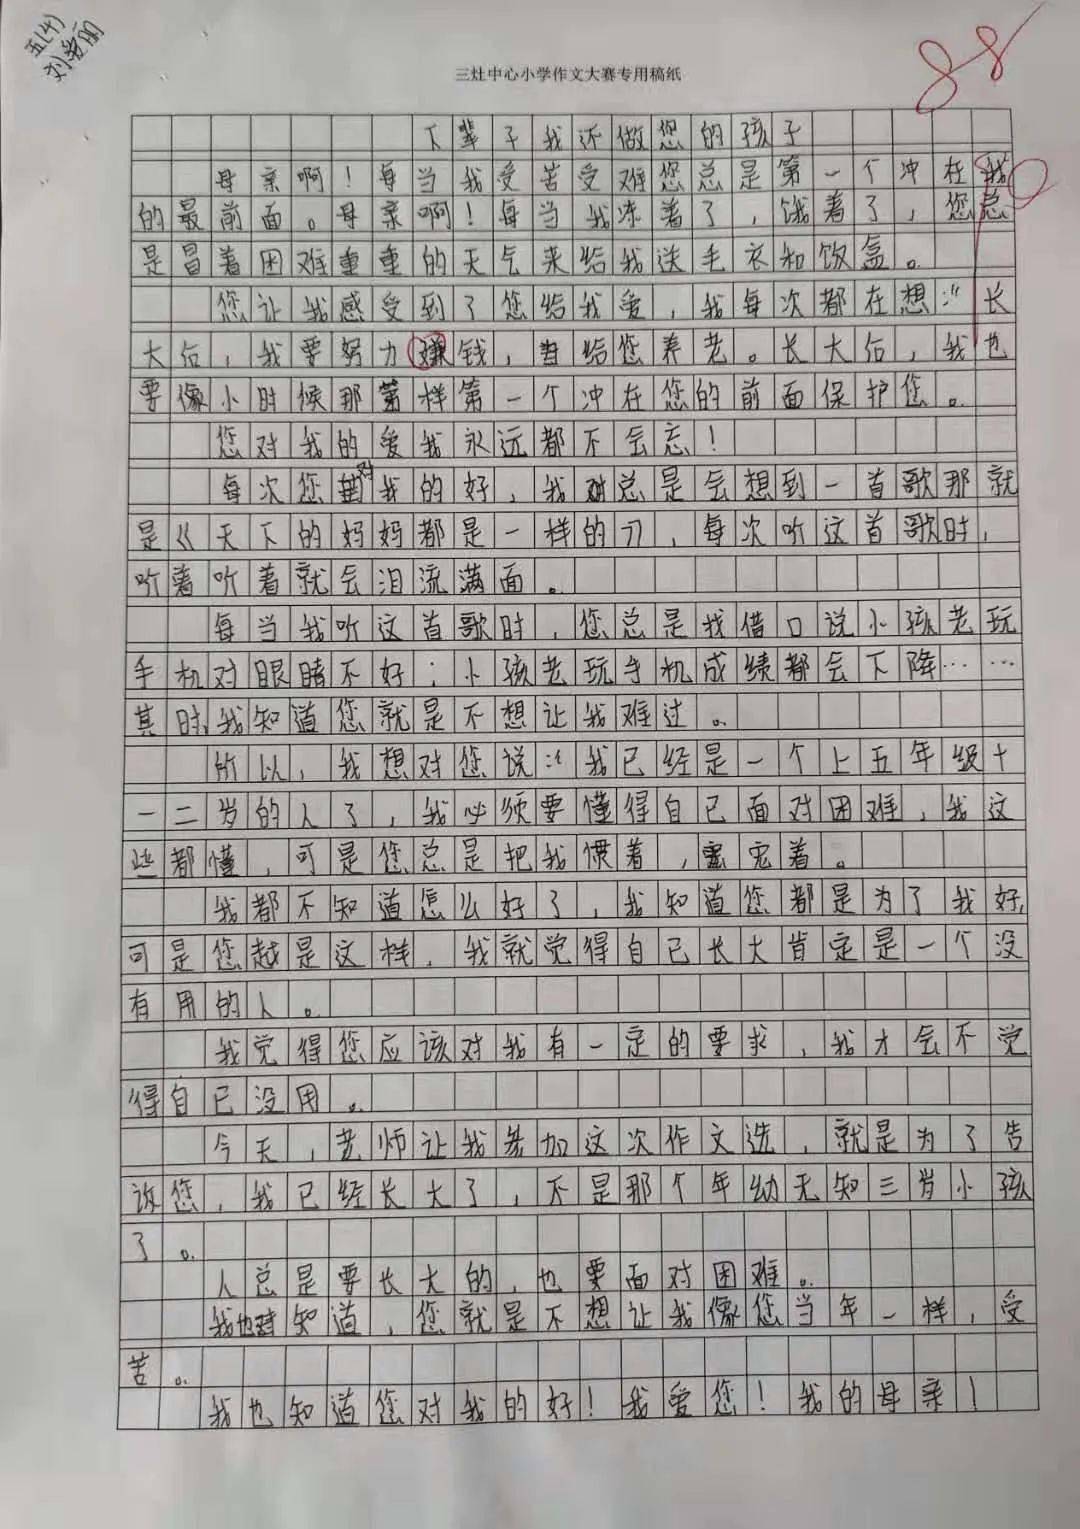 五(4)
刘爱丽
88
三灶中心小学作文大赛专用稿纸
下辈子我还做您的孩子
母亲啊！每当我受苦受难您总是第一个冲在我
的最前面。母亲啊！每当我冻着了，饿着了，您总
是冒着困难重重的天气来给我送毛衣和饭盒。
您让我感受到了您给我爱，我每次都在想：“长
大后，我要努力赚钱，给您养老。长大后，我也
要像小时候那样第一个冲在您的前面保护您。
您对我的爱我永远都不会忘！
每次您对我的好，我总是会想到一首歌那就
是《天下的妈妈都是一样的》，每次听这首歌时，
听着听着就会泪流满面。
每当我听这首歌时，您总是找借口说小孩老玩
手机对眼睛不好；小孩老玩手机成绩都会下降……
其时，我知道您就是不想让我难过。
所以，我想对您说：“我已经是一个上五年级十
一二岁的人了，我必须要懂得自己面对困难，我这
些都懂，可是您总是把我惯着，宠着。
我都不知道怎么好了，我知道您都是为了我好，
可是您越是这样，我就觉得自己长大肯定是一个没
有用的人。
我觉得您应该对我有一定的要求，我才会不觉
得自己没用。
今天，老师让我参加这次作文选，就是为了告
诉您，我已经长大了，不是那个年幼无知三岁小孩
了。
人总是要长大的，也要面对困难。
我也知道，您就是不想让我像您当年一样，受
苦。
我也知道您对我的好！我爱您！我的母亲！